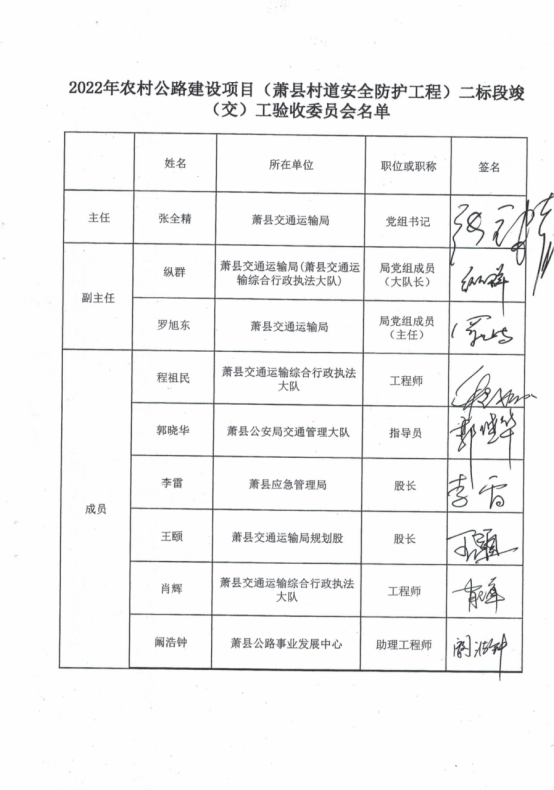 2022年农村公路建设项目（萧县村道安全防护工程）二标段竣
（交）工验收委员会名单
姓名 所在单位 职位或职称 签名
主任 张全精 萧县交通运输局 党组书记
副主任
纵群 萧县交通运输局(萧县交通运
输综合行政执法大队) 局党组成员
（大队长） 纵群
罗旭东 萧县交通运输局 局党组成员
（主任）
成员
程祖民 萧县交通运输综合行政执法
大队 工程师
郭晓华 萧县公安局交通管理大队 指导员 郭晓华
李雷 萧县应急管理局 股长 李雷
王颐 萧县交通运输局规划股 股长 王颐
肖辉 萧县交通运输综合行政执法
大队 工程师 肖辉
阚浩钟 萧县公路事业发展中心 助理工程师 阚浩钟